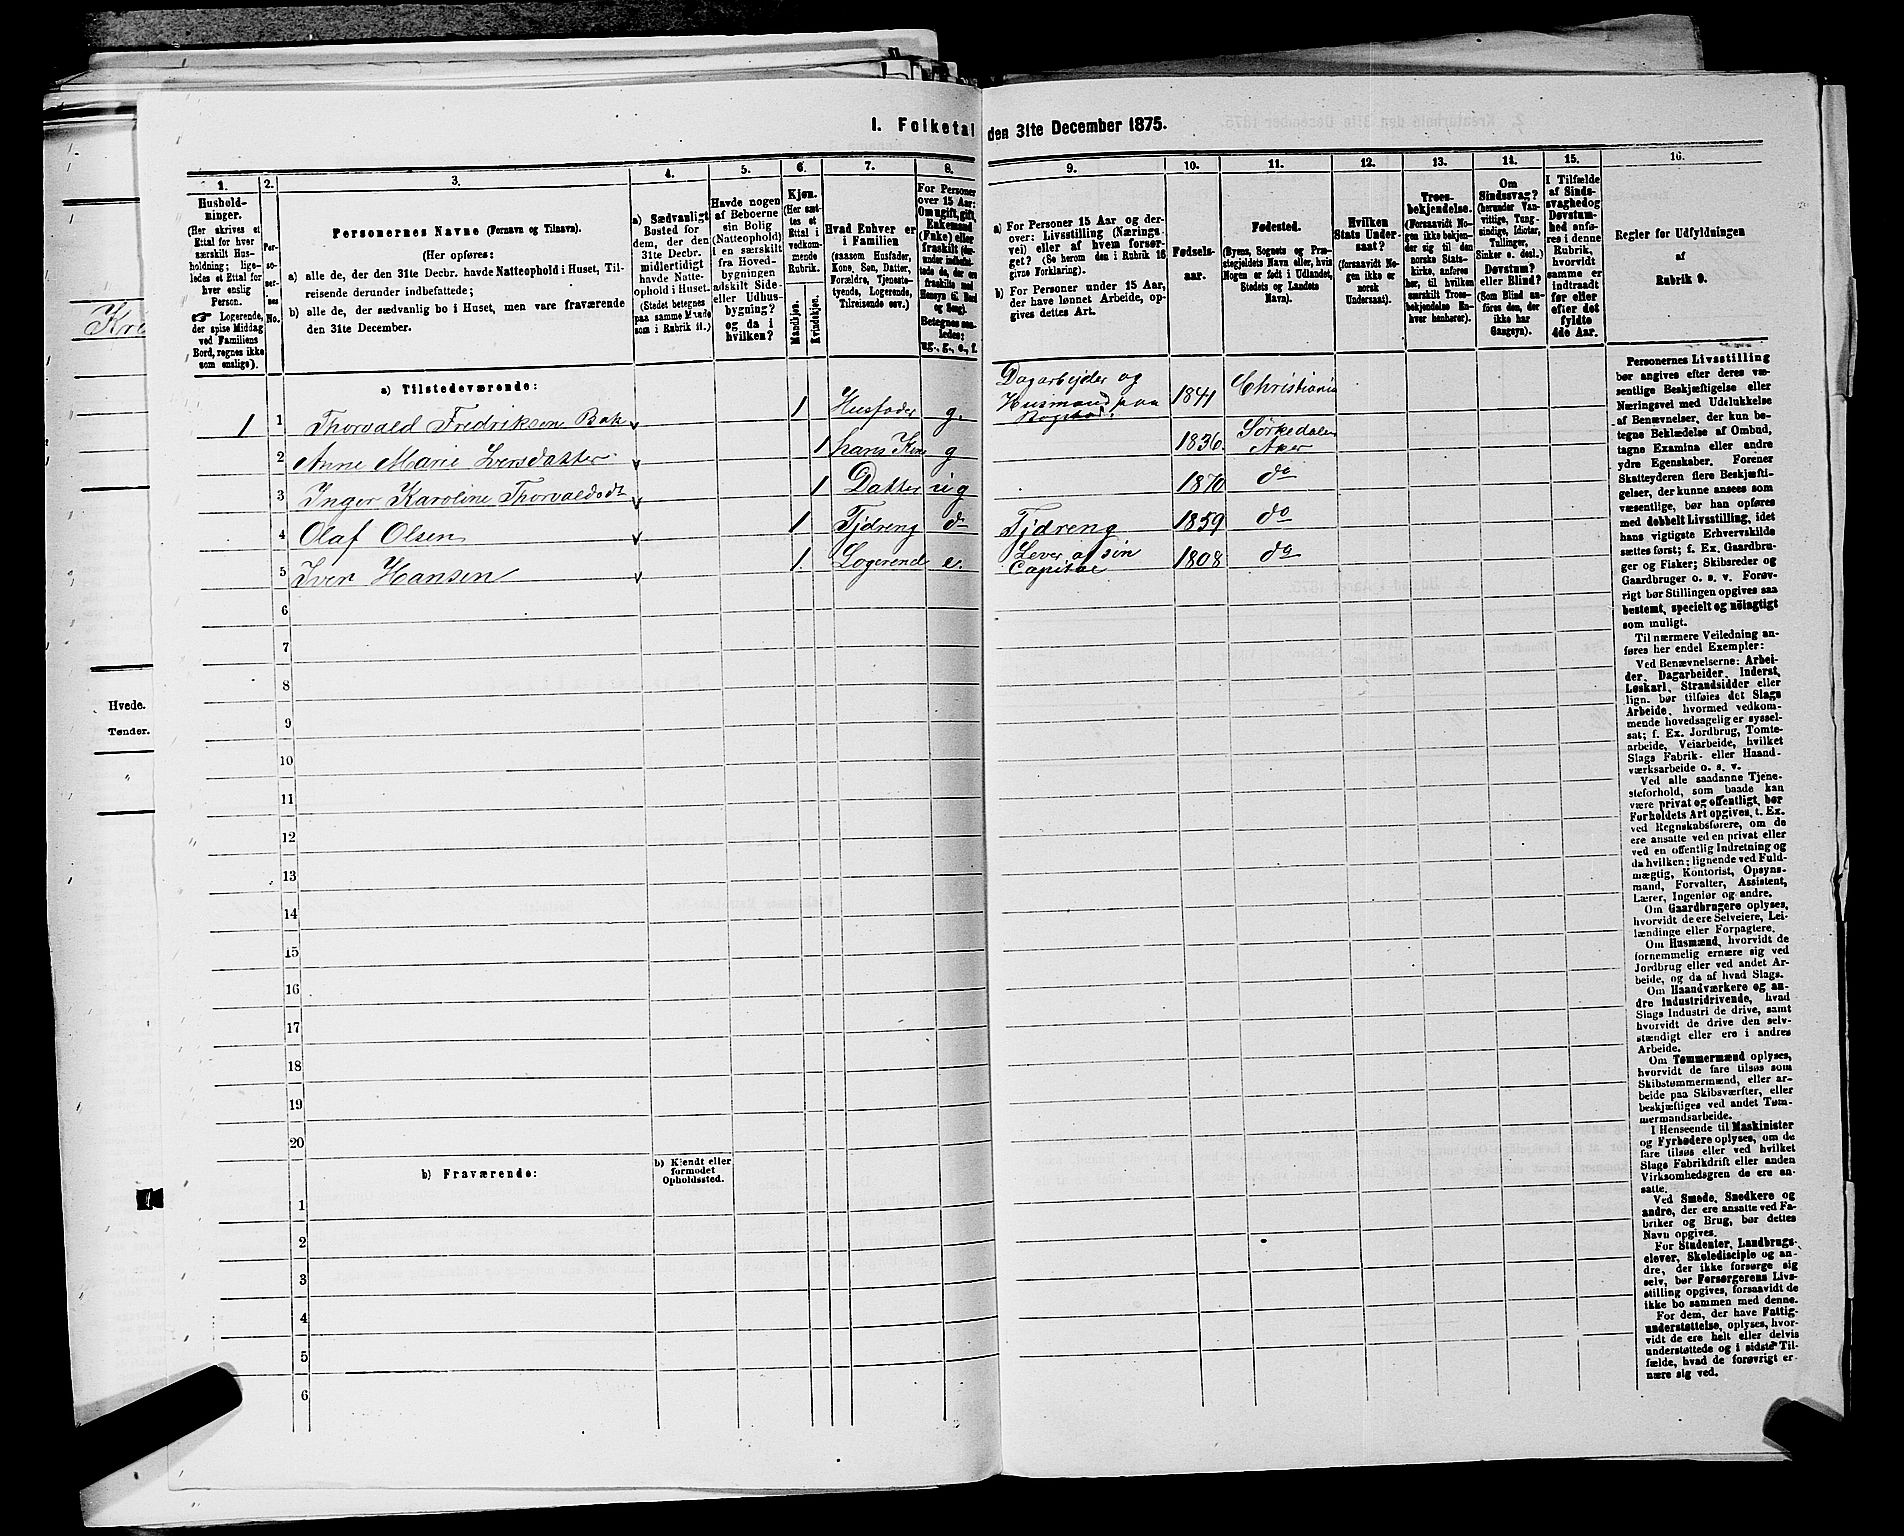 I. Folketal den 31te December 1875.
1. 2. 3. 4. 5. 6. 7. 8. 9. 10. 11. 12. 13. 14. 15. 16.
Hushold-
ninger.
(Her skrives et
Ettal for hver
særskilt Hus-
holdning; lige-
ledes et Ettal for
hver enslig
Person.
☞ Logerende,
der spise Middag
ved Familiens
Bord, regnes ikke
som enslige).
Per-
so-
ner-
nes
No.
Personernes Navne (Fornavn og Tilnavn).
(Her opføres:
a) alle de, der den 31te Decbr. havde Natteophold i Huset, Til-
reisende derunder indbefattede;
b) alle de, der sædvanlig bo i Huset, men vare fraværende
den 31te December.
a) Sædvanligt
Bosted for
dem, der den
31te Decbr.
midlertidigt
havde Natte-
ophold i Huset.
(Stedet betegnes
paa samme Maade
som i Rubrik 11.)
Havde nogen
af Beboerne
sin Bolig
(Natteophold)
i en særskilt
fra Hoved-
bygningen
adskilt Side-
eller Udhus-
bygning?
og da i
hvilken?
Kjøn.
(Her sæt-
tes et
Ettal i
vedkom-
mende
Rubrik.
Mandkjøn.
Kvindekjøn.
Hvad Enhver er
i Familien
(saasom Husfader,
Kone, Søn, Datter,
Forældre, Tjeneste-
tyende, Logerende,
Tilreisende osv.)
For Personer
over 15 Aar:
Om ugift, gift,
Enkemand
(Enke) eller
fraskilt
Betegnes saa-
ledes:
ug., g., e., f.
a) For Personer 15 Aar og der-
over: Livsstilling (Nærings-
vei) eller af hvem forsør-
get? (Se herom den i Rubrik 16
givne Forklaring).
b) For Personer under 15 Aar,
der have lønnet Arbeide, op-
gives dettes Art.
Fødsels-
aar.
Fødested.
(Byens, Sognets og Præ-
stegjeldets Navn eller, hvis
Nogen er født i Udlandet,
Stedets og Landets
Navn).
Hvilken
Stats Under-
saat?
(forsaavidt No-
gen ikke er
norsk
Undersaat).
Troes-
bekjendelse.
(Forsaavidt No-
gen ikke bekjen-
der sig til den
norske Stats-
kirke, anføres
her, til hvilken
særskilt Troes-
bekjendelse En-
hver henhører).
Om
Sindssvag?
(herunder Van-
vittige, Tung-
sindige, Idioter,
Tullinger,
Sinker o. desl.)
Døvstum?
eller Blind?
(Som Blind an-
føres den, der
ikke har
Gangsyn).
I Tilfælde
af Sinds-
svaghed og
Døvstum-
hed anfø-
res i denne
Rubrik,
hvorvidt
samme er
indtraadt
før eller
efter det
fyldte
4de Aar.
Regler for Udfyldningen
af
Rubrik 9.
a) Tilstedeværende:
1 1 Thorvald Fredriksen Bak v 1 Husfader g. Dagarbejder og Husmand paa Bogstad. 1841 Christiania
2 Anne Marie Larsdatter v 1 hans Kone g 1836. Sørkedalen Aker
3 Inger Karoline Thorvaldsdt v 1 Datter ug 1870 do
4 Olaf Olsen v 1 Tjdreng do Tjdreng 1859 do
5 Iver Hansen v 1. Logerend e. Lever af sin Capital 1808 do
6
7
8
9
10
11
12
13
14
15
16
17
18
19
20
b) Fraværende:
b) Kjendt eller
formodet
Opholdssted.
1
2
3
4
5
6
Personernes Livsstilling
bør angives efter deres væ-
sentlige Beskjæftigelse eller
Næringsvei med Udelukkelse
af Benævnelser, der kun be-
tegne Beklædelse af Ombud,
tagne Examina eller andre
ydre Egenskaber. Forener
Skatteyderen flere Beskjæfti-
gelser, der kunne ansees som
væsentlige, bør han opføres
med dobbelt Livsstilling, idet
hans vigtigste Erhvervskilde
sættes først; f. Ex. Gaardbru-
ger og Fisker; Skibsreder og
Gaardbruger o. s. v. Forøv-
rigt bør Stillingen opgives saa
bestemt, specielt og nöiagtigt
som muligt.
Til nærmere Veiledning an-
føres her endel Exempler:
Ved Benævnelserne: Arbei-
der, Dagarbeider, Inderst,
Løskarl, Strandsidder eller
lign. bør tilføies det Slags
Arbeide, hvormed vedkom-
mende hovedsagelig er syssel-
sat; f. Ex. Jordbrug, Tomte-
arbeide, Veiarbeide, hvilket
Slags Fabrik- eller Haand-
værksarbeide o. s. v.
Ved alle saadanne Tjene-
steforhold, som baade kan
være privat og offentligt, bør
Forholdets Art opgives, t. Ex.
ved Regnskabsførere, om de
ere ansatte ved en privat eller
ved en offentlig Indretning og
da hvilken; lignende ved Fuld-
mægtig, Kontorist, Opsyns-
mand, Forvalter, Assistent,
Lærer, Ingeniør og andre.
Om Gaardbrugere oplyses,
hvorvidt de ere Selveiere, Lei-
lændinge eller Forpagtere.
Om Husmænd, hvorvidt de
fornemmelig ernære sig ved
Jordbrug eller ved andet Ar-
beide, og da af hvad Slags.
Om Haandværkere og an-
dre Industridrivende, hvad
Slags Industri de drive, samt
hvorvidt de drive den selv-
stændigt eller ere i andres
Arbeide.
Om Tømmermænd oplyses,
hvorvidt de fare tilsøs som
Skibstømmermænd, eller ar-
beide paa Skibsværfter, eller
beskjæftiges ved andet Tøm-
mermandsarbeide.
I Henseende til Maskinister
og Fyrbødere oplyses, om de
fare tilsøs eller ved hvilket
Slags Fabrikdrift eller anden
Virksomhedsgren de ere an-
satte.
Ved Smede, Snedkere og
andre, der ere ansatte ved Fa-
briker og Brug, bør dettes
Navn opgives.
For Studenter, Landbrugs-
elever, Skoledisciple og an-
dre, der ikke forsørge sig
selv, bør Forsørgerens Livs-
stilling opgives, forsaavidt de
ikke bo sammen med denne.
For dem, der have Fattig-
understøttelse, oplyses, hvor-
vidt de ere helt eller delvis
understøttede og i sidste Til-
fælde, hvad de forøvrigt er-
nære sig ved.
Hvede.
Tønder.